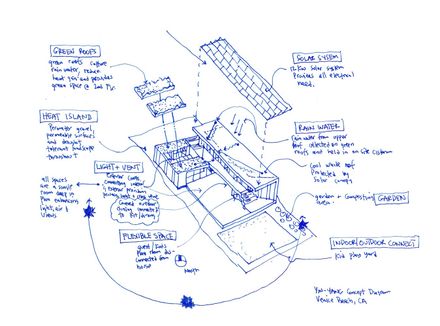 GREEN ROOFS
green roofs capture
rain water, reduce
heat gain and provides
green space @ 2nd Flr.
SOLAR SYSTEM
12 KW solar system
Provides all electrical
need.
HEAT ISLAND
Perimeter gravel,
permeable surfaces
and drought
tolerant landscape
throughout
RAIN WATER
Rain water from upper
roof collected on green
roofs and held in on site cistern
Cool white roof
Protected by
Solar canopy
LIGHT + VENT
Exterior courts
all spaces
are a single
light, air &
views
FLEXIBLE SPACE
guest / kids
Connected from
house
North
garden + composting
GARDEN
INDOOR/OUTDOOR CONNECT
Kids play yard
YIN-YANG Concept Diagram
Venice Beach, CA